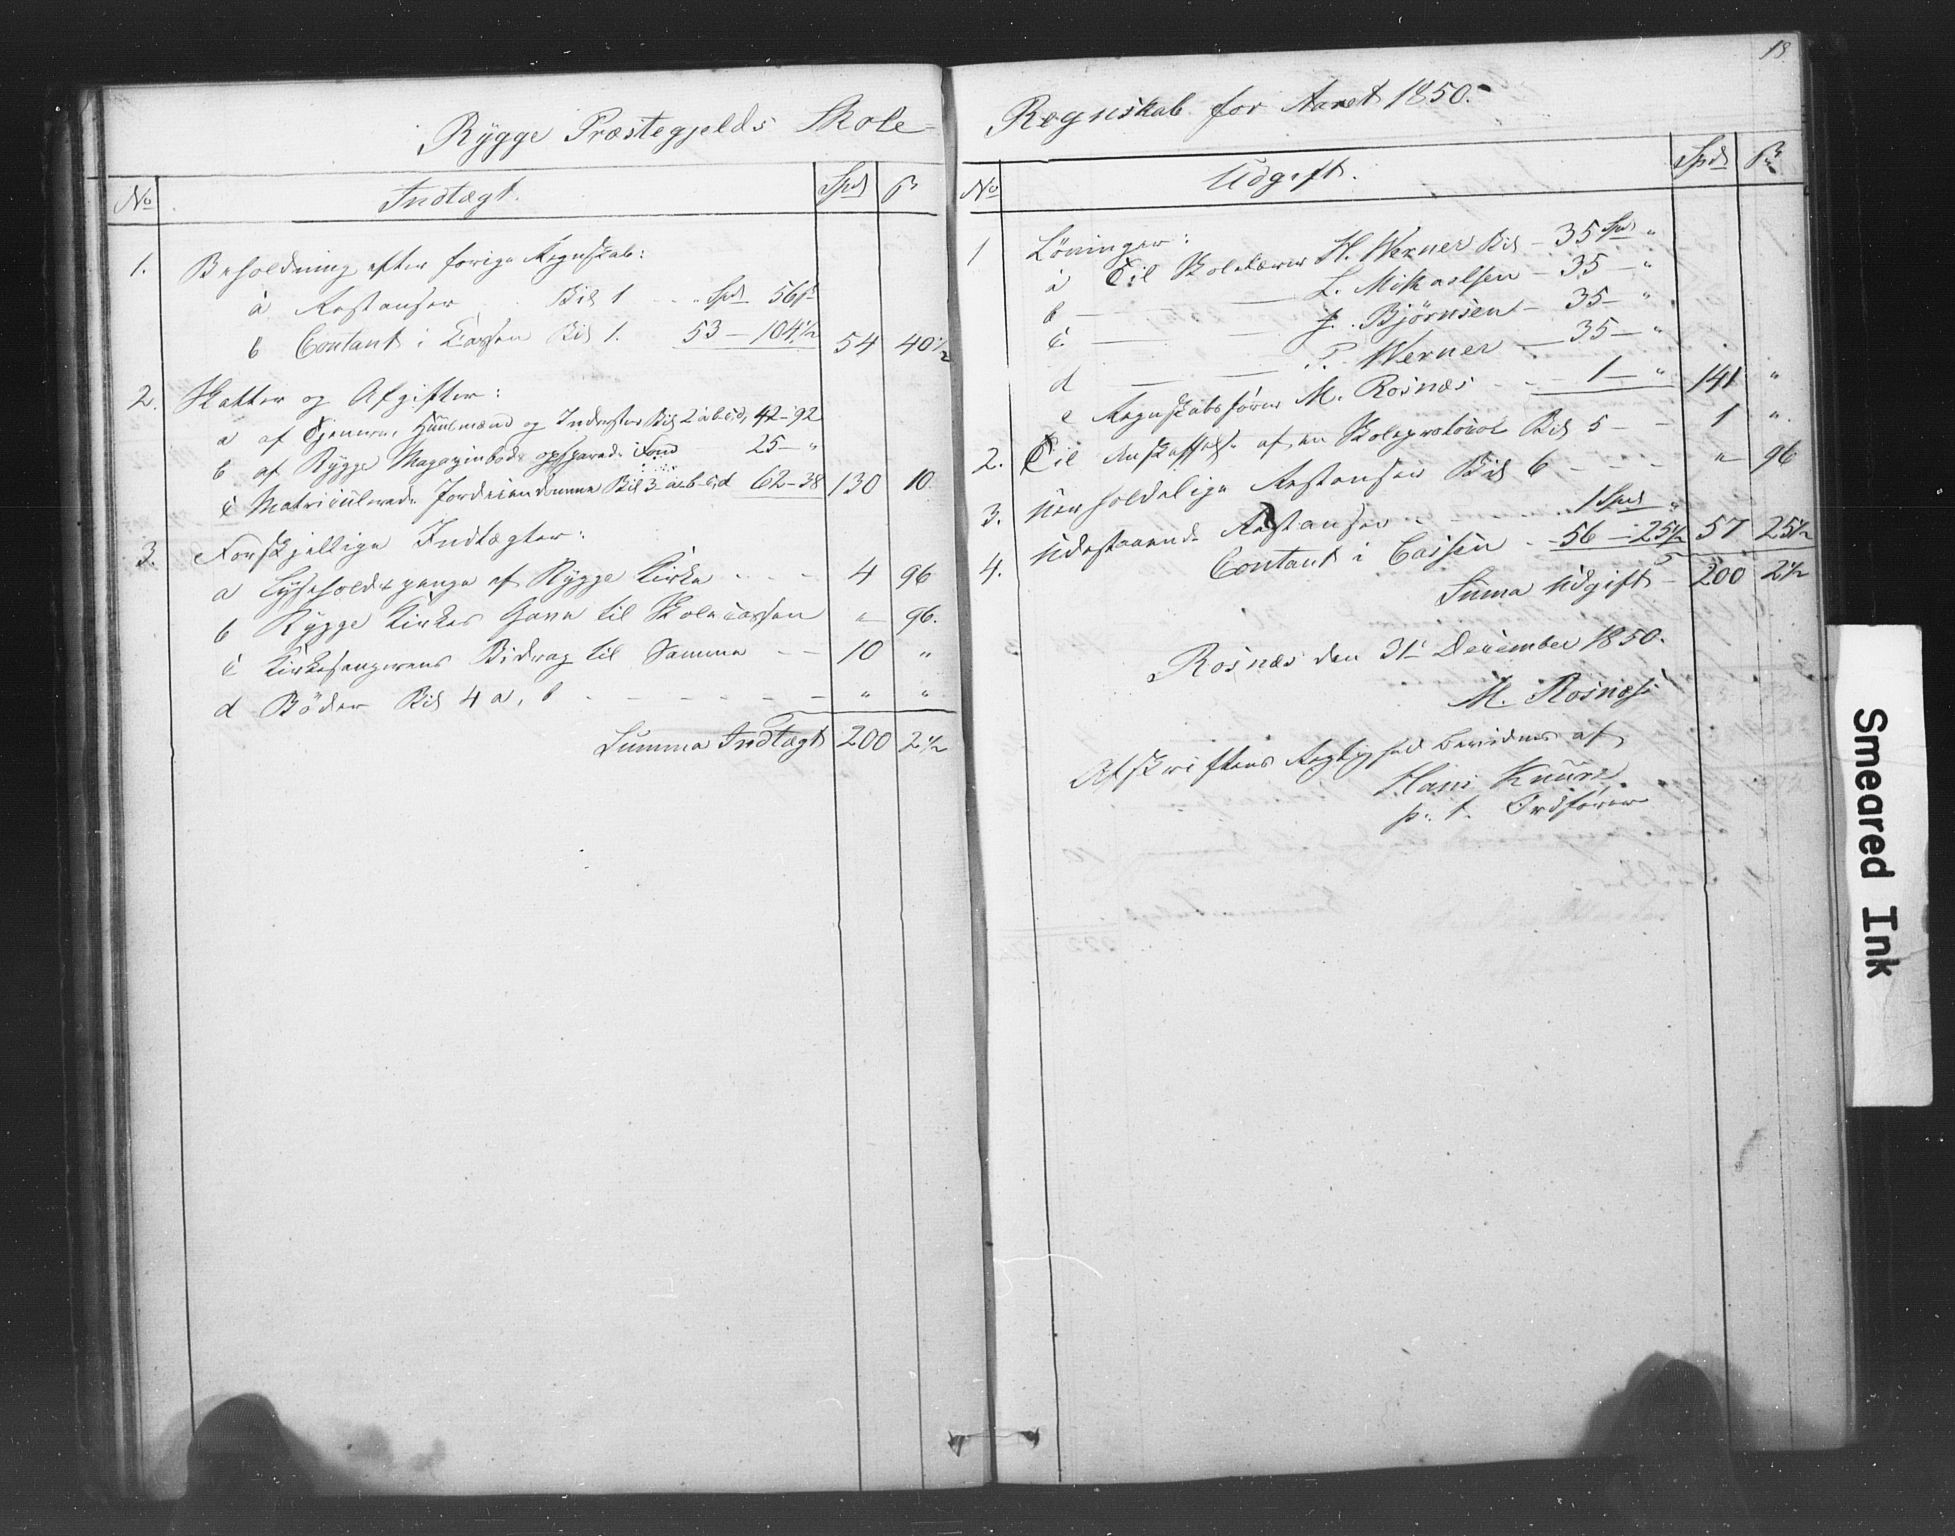 Rÿgge Præstegjelds Skole
No Indtægt. Spd ß
1. Beholdning efter forige Regnskab:
a Restanser Bil 1 Spd 56 ß
b Contant i Cassen Bil 1. 53 – 104½ 54 40½
2. Skatter og Afgifter:
a af Tjenere, Huusmænd og Inderster Bil 2 a b c d, 42–92
b af Rÿgge Magazinbods opsparede Fond 25 – "
c Matriculerede Jordeiendomme Bil 3 a b c d 62–38 130 10
3. Forskjellige Indtægter:
a Lyseholderpenge af Rÿgge Kirke 4 96
b Rÿgge Kirkes Gave til Skolecassen " 96.
c Kirkesangerens Bidrag til Samme – – 10 "
d Bøder Bil 4 a, b – – – – – – " "
Summa Indtægt 200 2½
18
Regnskab for Aaret 1850.
No Udgift. Spd ß
1 Løninger:
a Til Skolelærer H. Werner Bil – 35 Spd "
b – L. Mikaelsen – 35 – "
c – J. Bjørnsen – 35 – "
d – P. Werner – 35 – "
e Regnskabsfører M. Rosnæs – 1 – " 141 "
2. Til Anskaffelse af en Skoleprotocol Bil 5 – – 1 "
3. Uerholdelige Restanser Bil 6 – – – " 96
4. Udestaaende Restanser – 1 Spd "
Contant i Cassen – 56 – 25½ 57 25½
Suma Udgift – 200 2½
Rosnæs den 31 December 1850.
M. Rosnæs
Afskriftens Rigtighed bevidner af
Hans Knurr
p. t. Ordfører
Smeared Ink